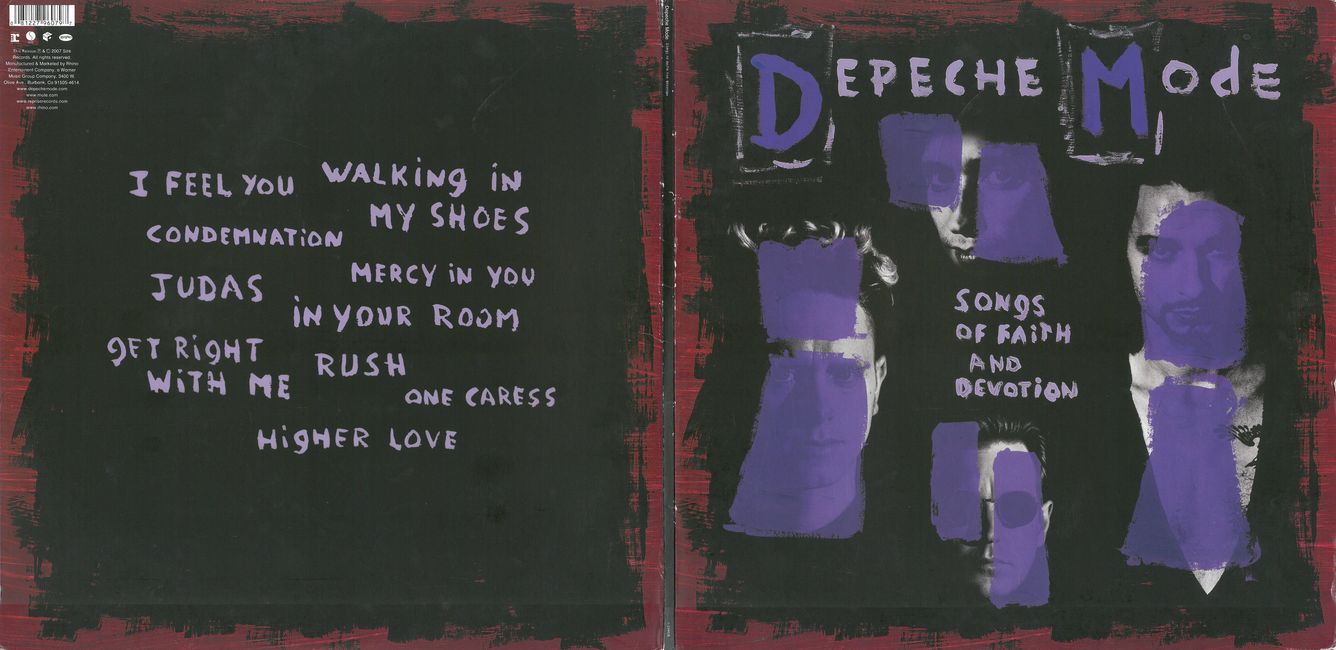 8 81227 96079 7
This Release ℗ & © 2007 Sire
Records. All rights reserved.
Manufactured & Marketed by Rhino
Entertainment Company, a Warner
Music Group Company, 3400 W.
Olive Ave., Burbank, CA 91505-4614.
www.depechemode.com
www.mute.com
www.repriserecords.com
www.rhino.com
I FEEL YOU
WALKiNg iN
MY SHOES
CONDEMNATiON
MERCY iN YOU
JUDAS
iN YOUR ROOM
gET RigHT
WiTH ME
RUSH
ONE CARESS
HigHER LOVE
Depeche Mode
DEPECHE MOdE
SONgS
OF FAiTH
AND
DEVOTiON